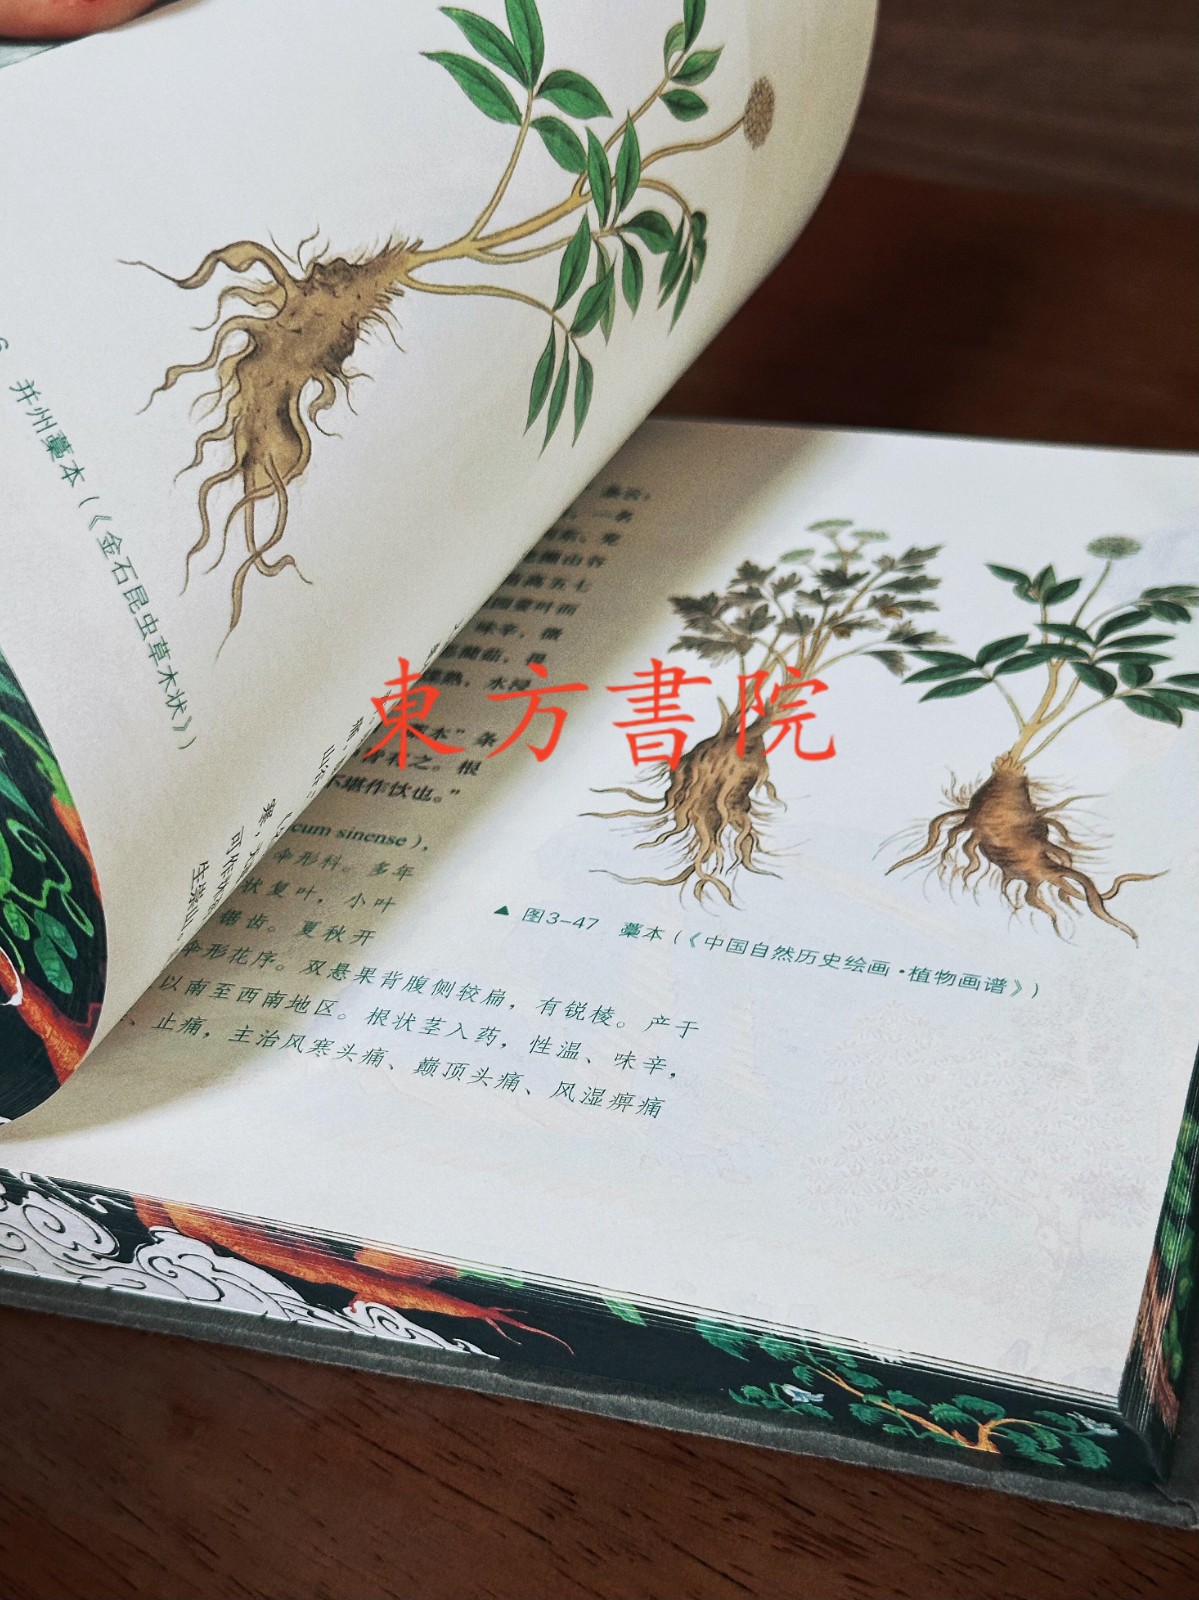 并州藁本（《金石昆虫草木状》）
一名
山谷
高五七
叶而
味辛，微
根
熟，水浸
本”条
之。根
不堪作饮也。”
cum sinense），
伞形科。多年
状复叶，小叶
锯齿。夏秋开
伞形花序。双悬果背腹侧较扁，有锐棱。产于
以南至西南地区。根状茎入药，性温、味辛，
、止痛，主治风寒头痛、巅顶头痛、风湿痹痛
▲ 图3-47 藁本（《中国自然历史绘画·植物画谱》）
東方書院